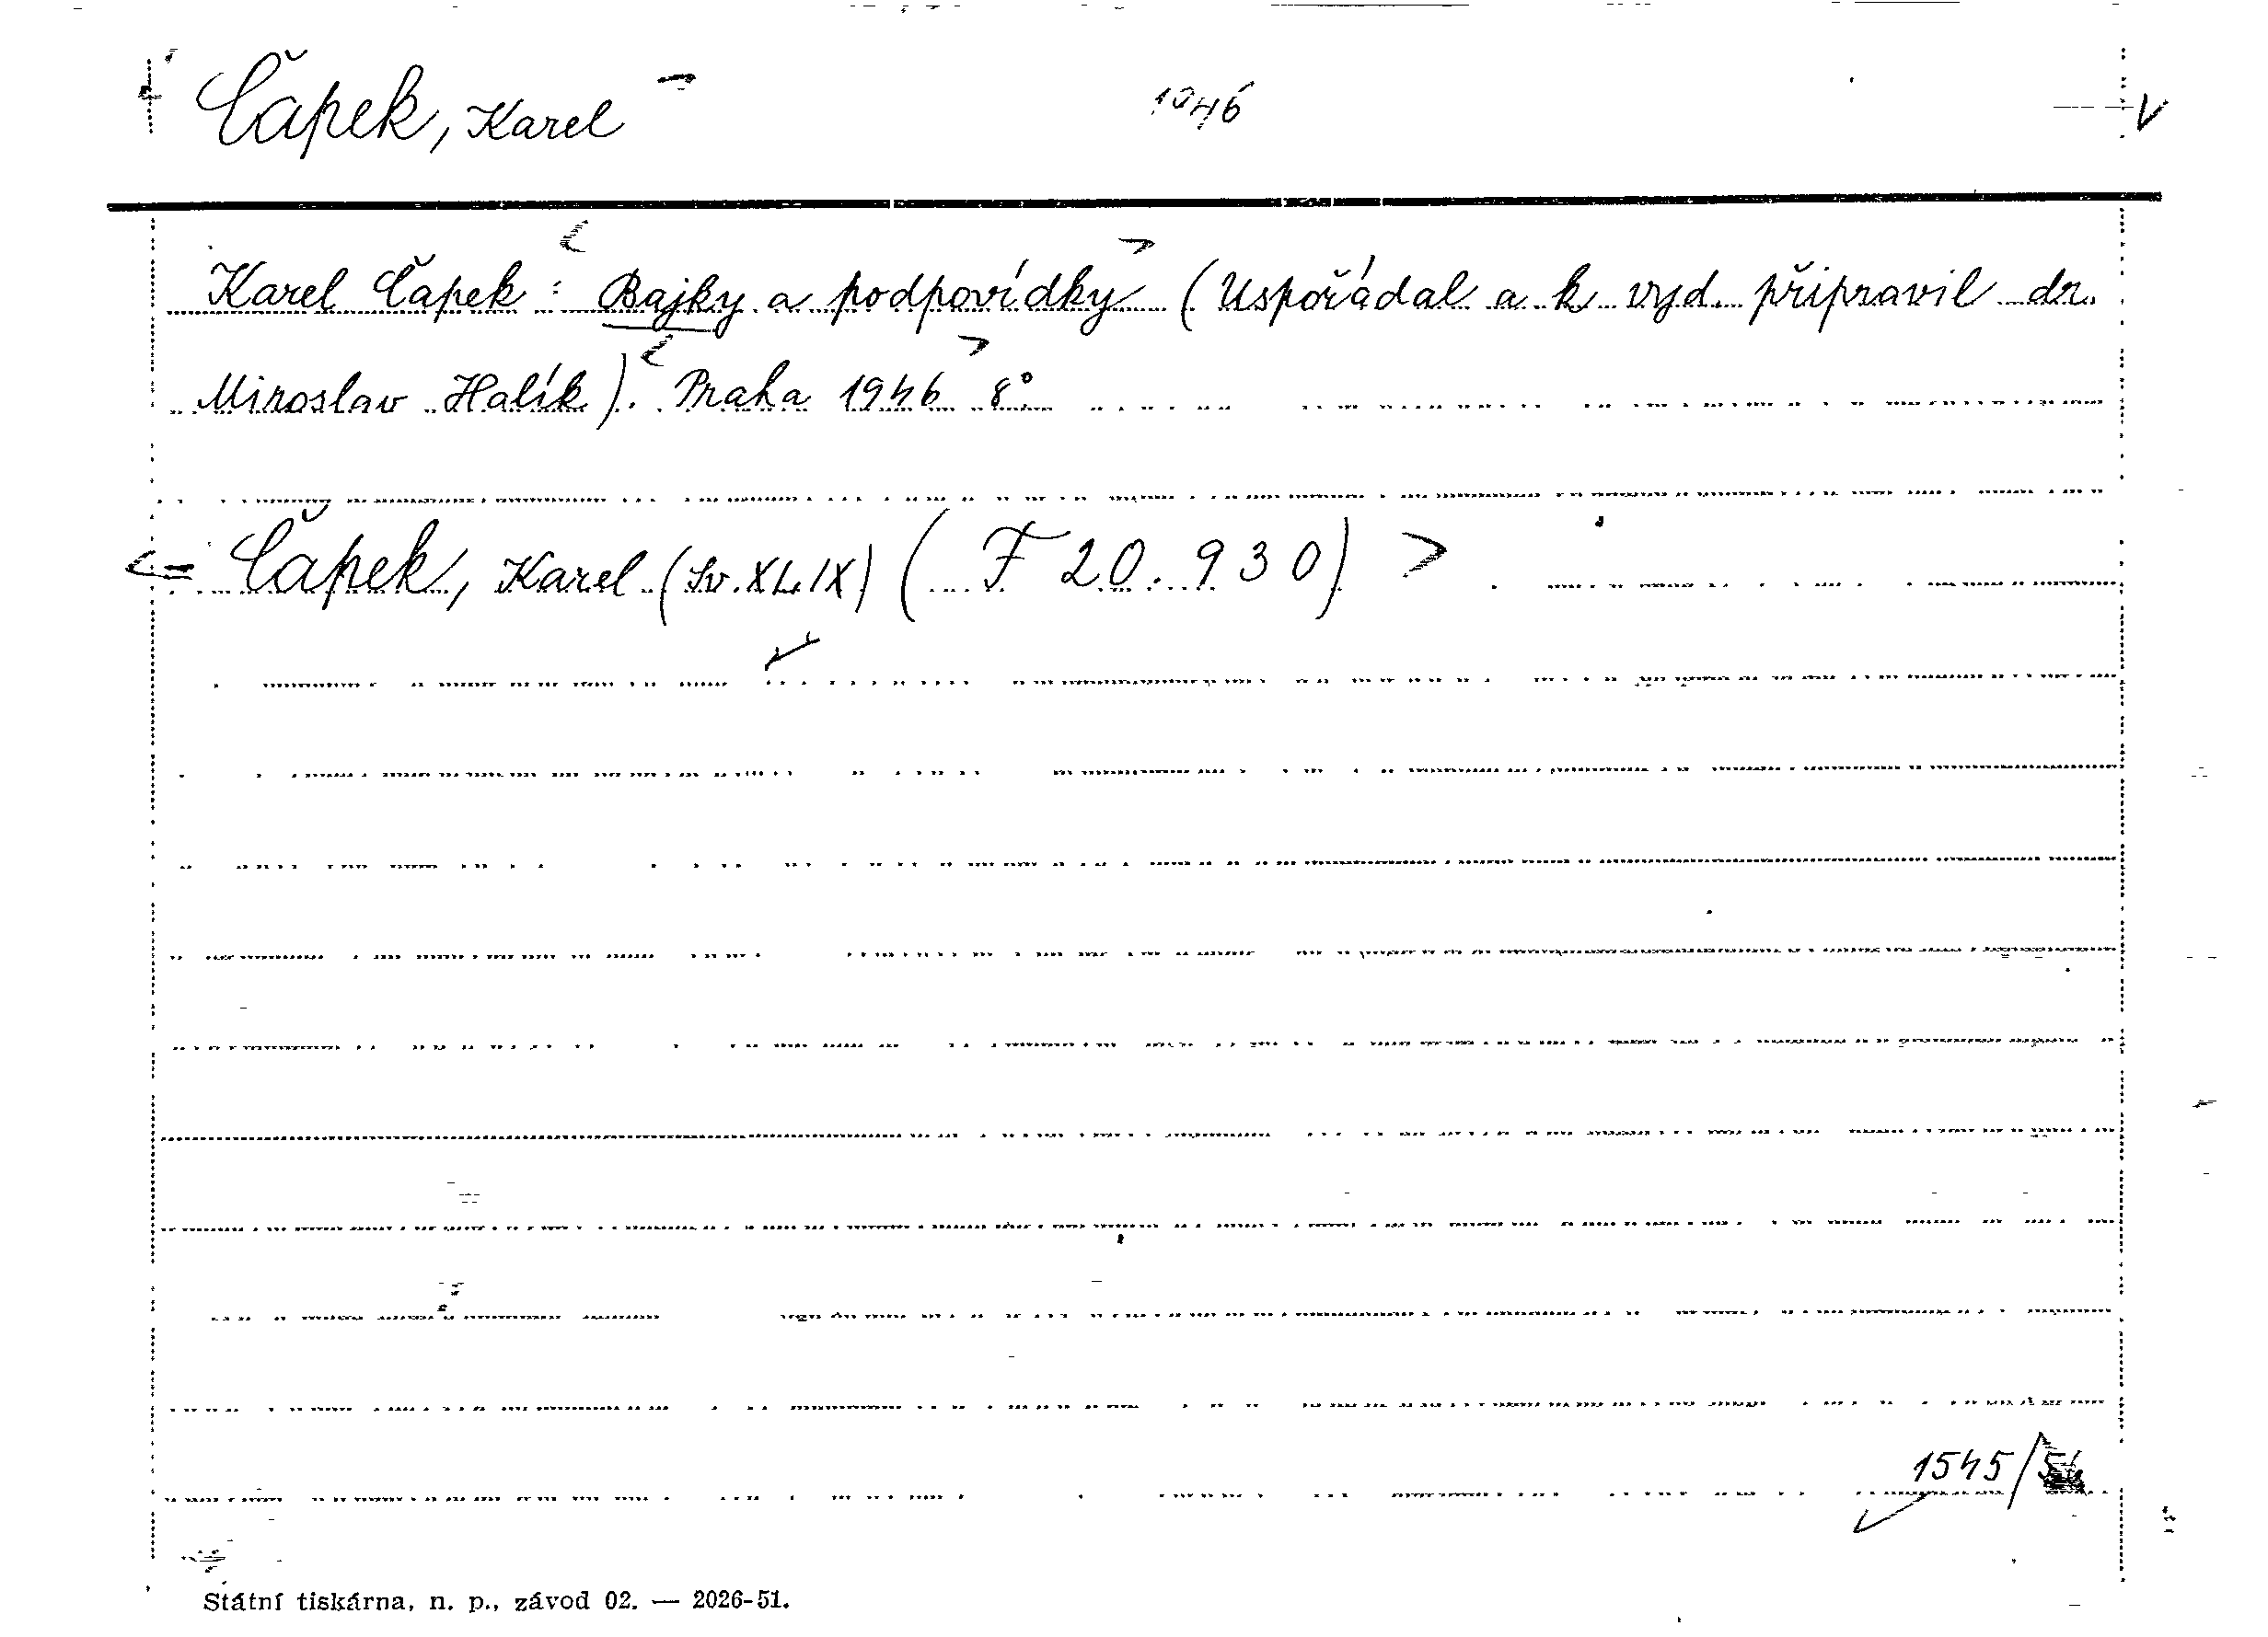 Čapek, Karel 1946 V
Karel Čapek: Bajky a podpovídky (Uspořádal a k vyd. připravil dr.
Miroslav Halík). Praha 1946 8°
Čapek, Karel (Sv. XLIX) (F 20.930)
1545/
Státní tiskárna, n. p., závod 02. — 2026-51.